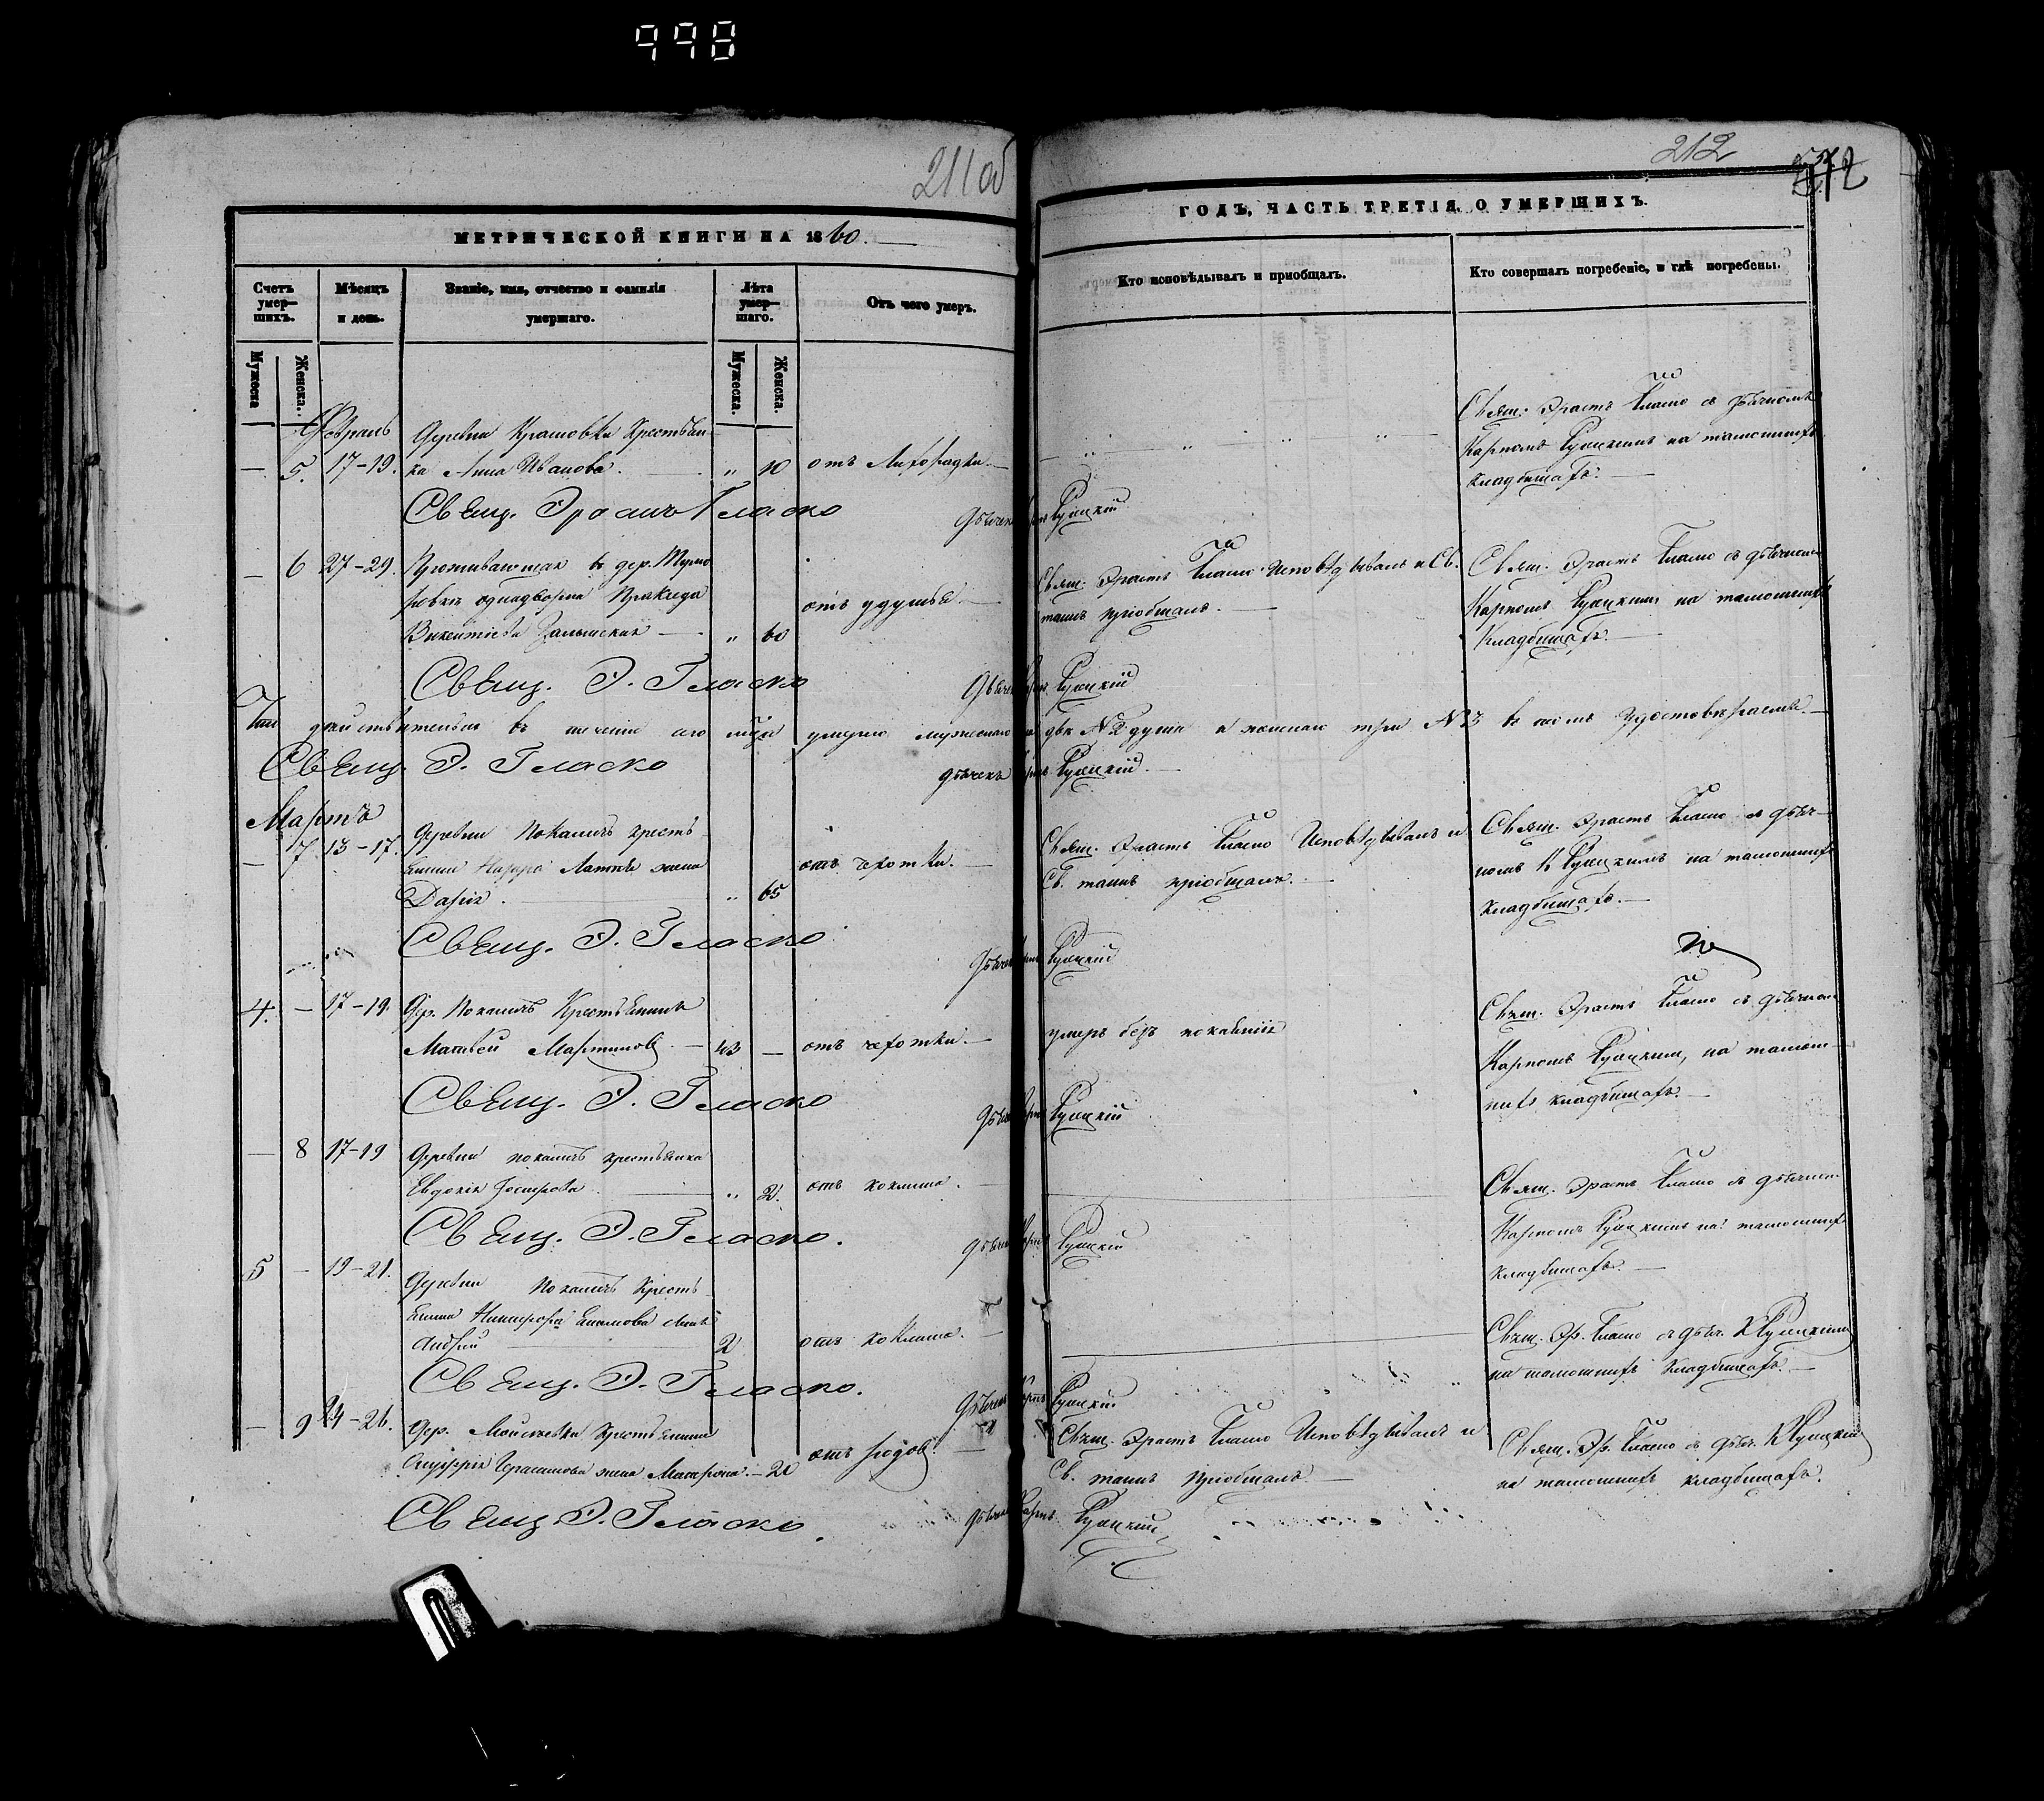 998
211 об
212
МЕТРИЧЕСКОЙ КНИГИ НА 1860.
ГОДЪ, ЧАСТЬ ТРЕТІЯ, О УМЕРШИХЪ.
Счетъ умер-шихъ.
Мѣсяцъ и день.
Званіе, имя, отчество и фамилія умершаго.
Лѣта умер-шаго.
Отъ чего умеръ.
Кто исповѣдывалъ и пріобщалъ.
Кто совершалъ погребеніе, и гдѣ погребены.
Мужеска
Женска.
Мужеска.
Женска.
Февраль
5. 17-19.
Деревни Крестьян-
ка Анна Иванова. " 10
отъ Лихорадки.
Свящ. Эрастъ Гласко съ дьячкомъ
Карпомъ Руцкимъ на тамошнихъ
кладбищахъ.
Свящ. Эрастъ Гласко
Дьячекъ Карпъ Руцкій
6 27-29.
Проживающая въ дер.
однадворка
Викентіева " 60
отъ удушья.
Свящ. Эрастъ Гласко Исповѣдывалъ и Св.
таинъ пріобщалъ.
Свящ. Эрастъ Гласко съ дьячкомъ
Карпомъ Руцкимъ на тамошнихъ
Кладбищахъ.
Свящ. Э. Гласко
Дьячекъ Карпъ Руцкій
Что дѣйствительно въ теченіи сего м-ца умерло мужеска двѣ №2 души а женска три №3 въ томъ удостовѣряемъ.
Свящ. Э. Гласко
дьячекъ Карпъ Руцкій.
Мартъ
7 13-17.
Деревни крестья-
нина жена
Дарія. " 65
отъ чахотки.
Свящ. Эрастъ Гласко Исповѣдывалъ и
Св. таинъ пріобщалъ.
Свящ. Эрастъ Гласко съ дьяч-
комъ К Руцкимъ на тамошнихъ
кладбищахъ.
Свящ. Э. Гласко
Дьячекъ Карпъ Руцкій
4. - 17-19.
Дер. Крестьянинъ
Матвей Мартиновъ - 43 -
отъ чахотки.
умеръ безъ покаянія
Свящ. Эрастъ Гласко съ дьячкомъ
Карпомъ Руцкимъ, на тамош-
нихъ кладбищахъ.
Свящ. Э. Гласко
Дьячекъ Карпъ Руцкій
- 8 17-19
Деревни крестьянка
Евдокія " 2.
отъ коклюша.
Свящ. Эрастъ Гласко съ дьячкомъ
Карпомъ Руцкимъ на тамошнихъ
кладбищахъ.
Свящ. Э. Гласко.
Дьячекъ Карпъ Руцкій
5 - 19-21.
Деревни Кресть-
янина Никифора сынъ
Андрей 2
отъ коклюша.
Свящ. Эр. Гласко съ дьяч. К Руцкимъ
на тамошнихъ кладбищахъ.
Свящ. Э. Гласко.
Дьячекъ Карпъ Руцкій
- 9 24-26.
Дер. Крестьянина
Герасимова жена Матрона. - 20
отъ родовъ.
Свящ. Эрастъ Гласко Исповѣдывалъ и
Св. таинъ пріобщалъ.
Свящ. Эр. Гласко съ дьяч. К Руцкимъ
на тамошнихъ кладбищахъ.
Свящ. Э. Гласко.
дьячекъ Карпъ Руцкій